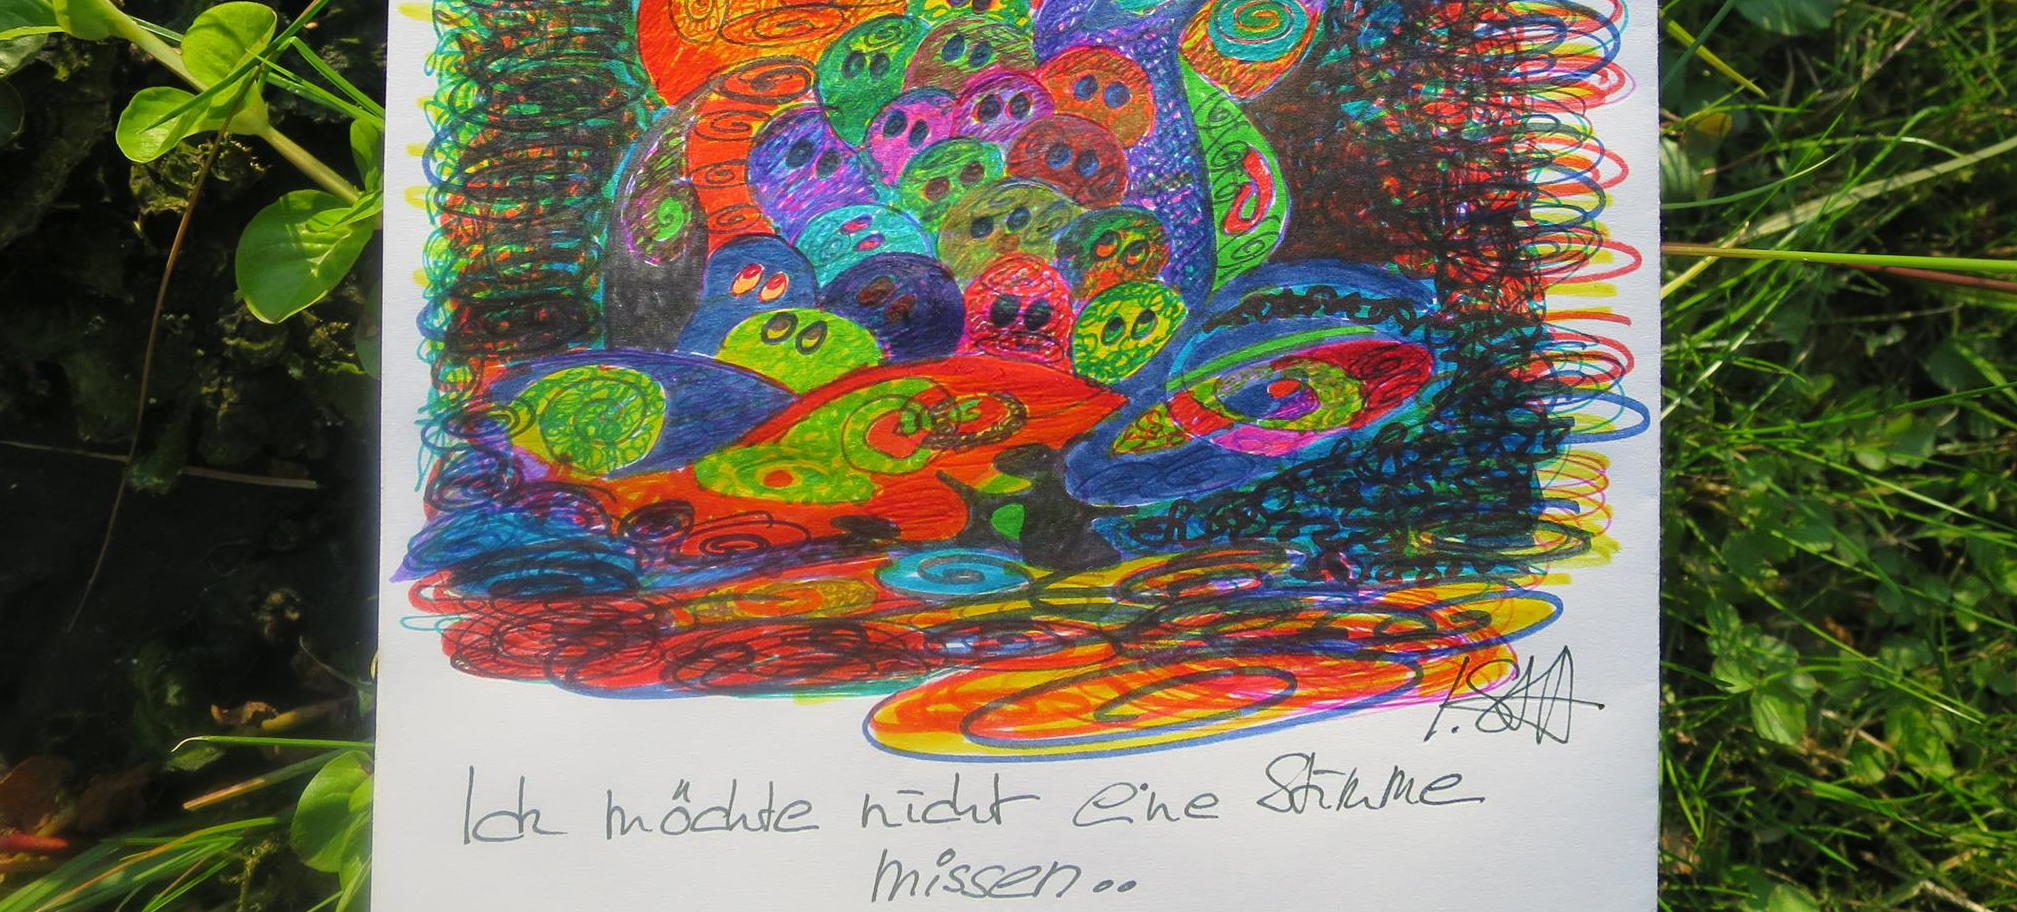 Ich möchte nicht eine Stimme
missen..